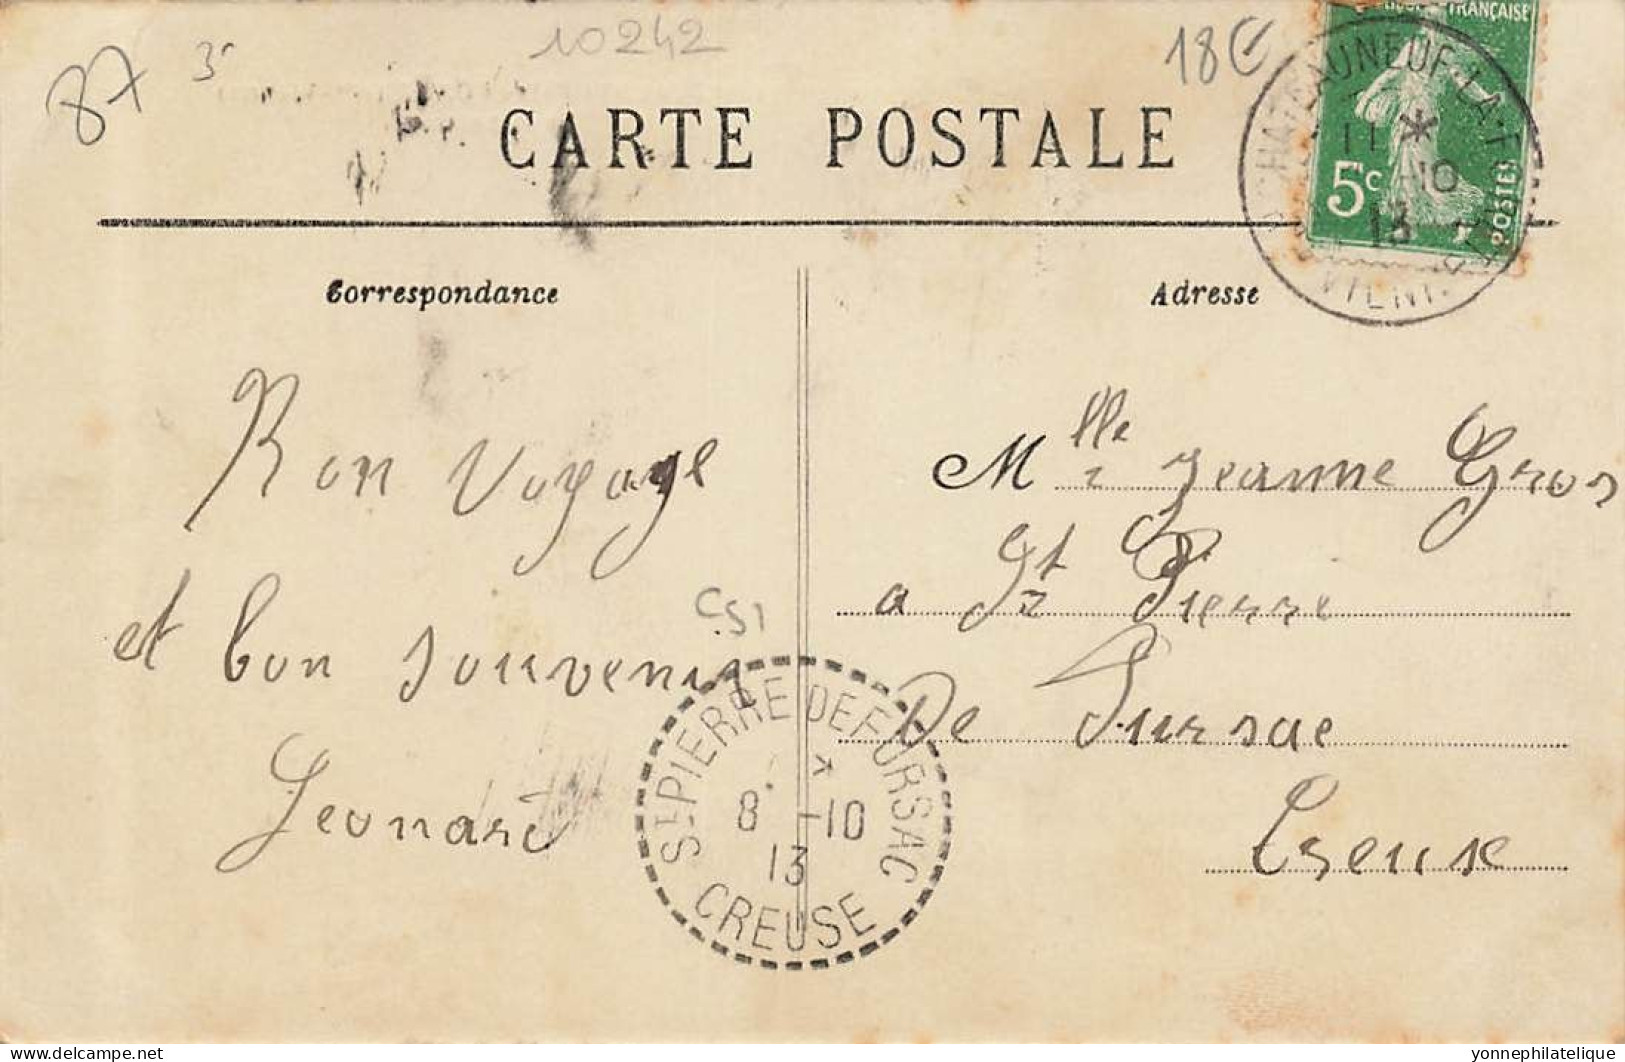 87
3
10242
18€
CARTE POSTALE
RÉPUBLIQUE FRANÇAISE
5c
POSTES
CHATEAUNEUF-LA-F
11 *
-10
13
VIENNE
Correspondance
Adresse
Bon voyage
et bon souvenir
Leonard
CS1
ST PIERRE DE FURSAC
*
8 -10
13
CREUSE
Mlle Jeanne Gros
a St Pierre
De Fursac
Creuse
delcampe.net
yonnephilatelique